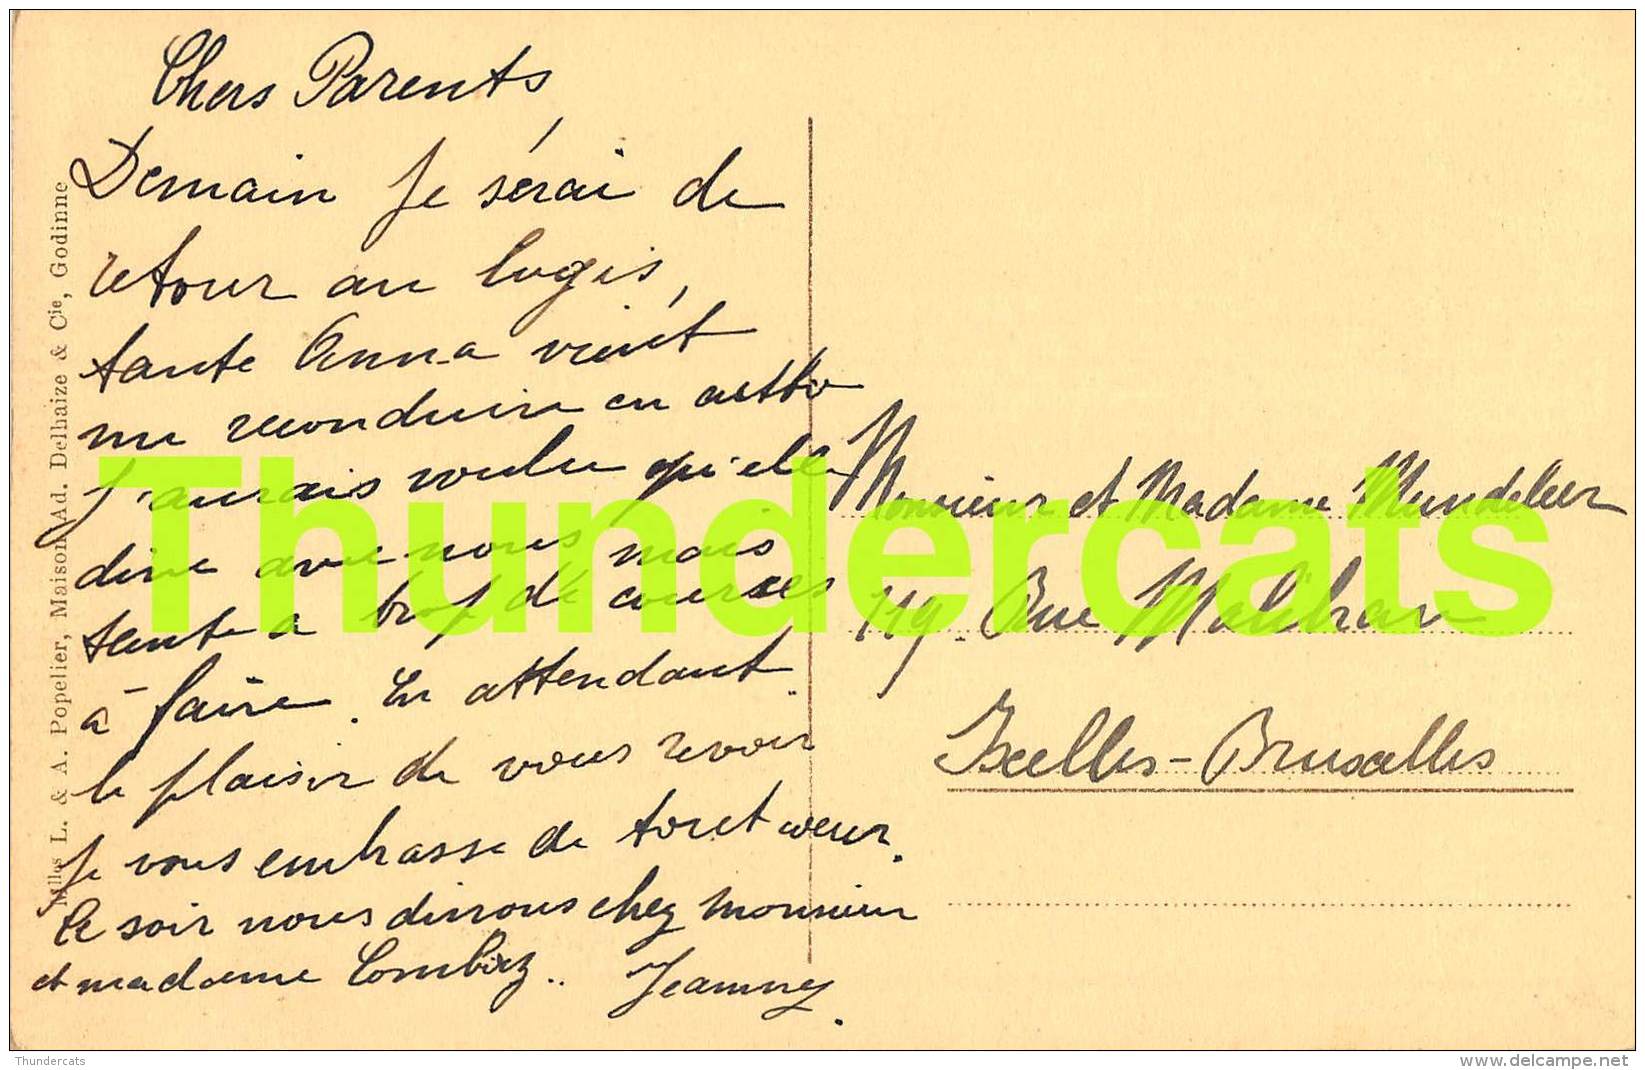 Chers Parents,
Demain je sérai de
retour au logis,
tante Anna vient
me reconduire en autto
j'aurais voulu qu'elle
dine avec nous mais
tante a trop de courses
à faire. En attendant
le plaisir de vous revoir
je vous embrasse de tout cœur.
Ce soir nous dinons chez monsieur
et madame .. Jeanny.
Mlles L. & A. Popelier, Maison Ad. Delhaize & Cie, Godinne
Monsieur et Madame Mundeleer
119. Rue Malibran
Ixelles-Bruxelles
Thundercats
Thundercats
delcampe.net